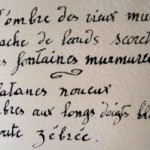 l'ombre des vieux mu
ache de lourds secret
es fontaines murmure
latanes noueux
bres aux longs doigts b
oute zébrée.